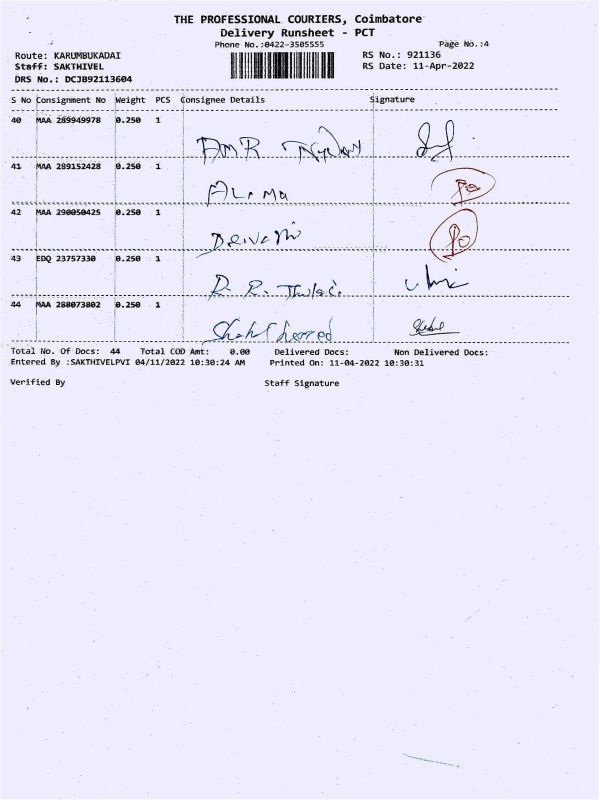 THE PROFESSIONAL COURIERS, Coimbatore
Delivery Runsheet - PCT
Phone No.:0422-3505555 Page No.:4
Route: KARUMBUKADAI RS No.: 921136
Staff: SAKTHIVEL RS Date: 11-Apr-2022
DRS No.: DCJB92113604
S No Consignment No Weight PCS Consignee Details Signature
40 MAA 289949978 0.250 1
AMR
41 MAA 289152428 0.250 1
42 MAA 290050425 0.250 1
43 EDQ 23757330 0.250 1
R. R.
44 MAA 288073802 0.250 1
Total No. Of Docs: 44 Total COD Amt: 0.00 Delivered Docs: Non Delivered Docs:
Entered By :SAKTHIVELPVI 04/11/2022 10:30:24 AM Printed On: 11-04-2022 10:30:31
Verified By Staff Signature